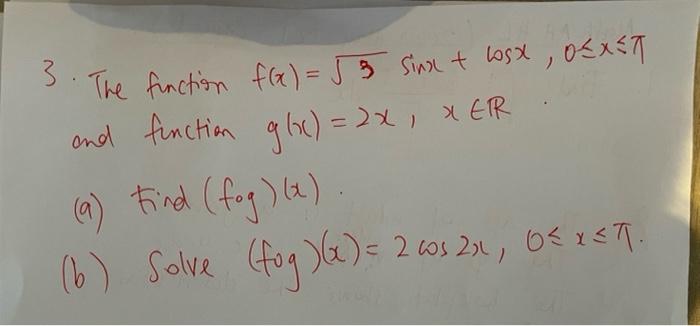 3. The function f(x) = √3 sinx + cosx, 0≤x≤π
and function g(x) = 2x, x ∈ ℝ.
(a) Find (fog)(x).
(b) Solve (fog)(x) = 2 cos 2x, 0≤x≤π.